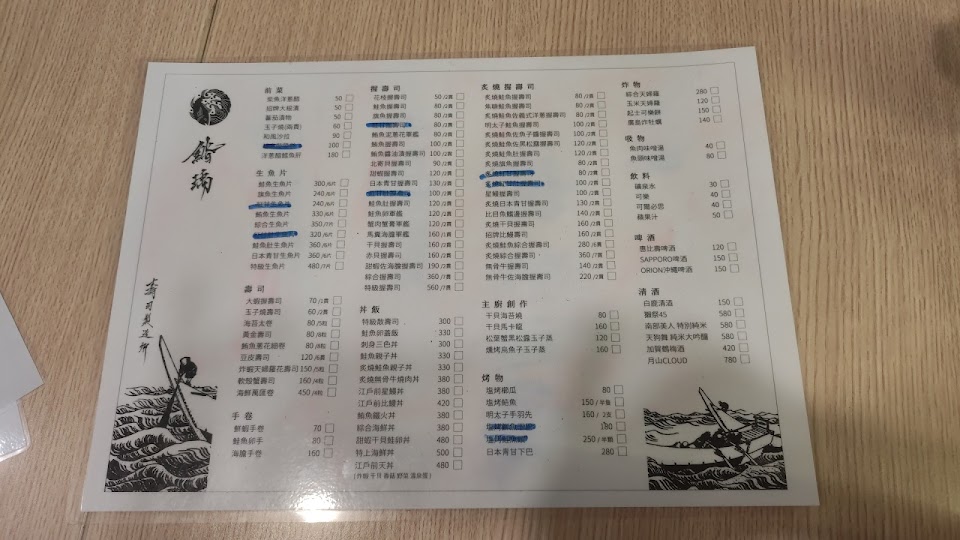 鮨瑀
壽司製造所
前菜
鮭魚洋蔥醋 50
招牌大松漬 50
蕃茄漬物 50
玉子燒(兩貫) 60
和風沙拉 90
100
洋蔥醋鱈魚肝 180
生魚片
鮭魚生魚片 300/6片
旗魚生魚片 240/6片
240/6片
鮪魚生魚片 330/6片
綜合生魚片 350/7片
320/6片
鮭魚肚生魚片 360/6片
日本青甘生魚片 360/6片
特級生魚片 480/7片
壽司
大蝦握壽司 70/2貫
玉子燒壽司 60/2貫
海苔太卷 80/5粒
黃金壽司 80/8粒
鮪魚蔥花細卷 80/8粒
豆皮壽司 120/6貫
炸蝦天婦羅花壽司 150/5粒
軟殼蟹壽司 160/4粒
海鮮萬匯卷 450/4粒
手卷
鮮蝦手卷 70
鮭魚卵手 80
海膽手卷 160
握壽司
花枝握壽司 50/2貫
鮭魚握壽司 80/2貫
旗魚握壽司 80/2貫
80/2貫
鮪魚泥蔥花軍艦 80/2貫
鮪魚握壽司 100/2貫
鮪魚醬油漬握壽司 100/2貫
北寄貝握壽司 90/2貫
甜蝦握壽司 120/2貫
日本青甘握壽司 130/2貫
100/2貫
鮭魚肚握壽司 120/2貫
鮭魚卵軍艦 120/2貫
蟹肉蟹膏軍艦 120/2貫
馬糞海膽軍艦 160/2貫
干貝握壽司 160/2貫
赤貝握壽司 160/2貫
甜蝦佐海膽握壽司 190/2貫
綜合握壽司 360/7貫
特級握壽司 560/7貫
丼飯
特級散壽司 300
鮭魚卵蓋飯 330
刺身三色丼 330
鮭魚親子丼 330
炙燒鮭魚親子丼 330
炙燒無骨牛燒肉丼 380
江戶前星鰻丼 380
江戶前比鰻丼 420
鮪魚鐵火丼 380
綜合海鮮丼 380
甜蝦干貝鮭卵丼 480
特上海鮮丼 500
江戶前天丼 480
炙燒握壽司
炙燒鮭魚握壽司 80/2貫
焦糖鮭魚握壽司 80/2貫
炙燒鮭魚佐義式洋蔥握壽司 80/2貫
明太子鮭魚握壽司 100/2貫
炙燒鮭魚佐魚子醬握壽司 100/2貫
炙燒鮭魚佐黑松露握壽司 120/2貫
炙燒鮭魚肚握壽司 120/2貫
炙燒旗魚握壽司 80/2貫
80/2貫
100/2貫
星鰻握壽司 100/2貫
炙燒日本青甘握壽司 130/2貫
比目魚鰭邊握壽司 140/2貫
炙燒干貝握壽司 160/2貫
招牌比鰻壽司 160/2貫
炙燒鮭魚綜合握壽司 280/6貫
炙燒綜合握壽司 360/7貫
無骨牛握壽司 140/2貫
無骨牛佐海膽握壽司 220/2貫
主廚創作
干貝海苔燒 80
干貝馬卡龍 160
松葉蟹黑松露玉子蒸 120
燻烤烏魚子玉子蒸 160
烤物
塩烤櫛瓜 80
塩烤鮭魚 150/半隻
明太子手羽先 160/2支
180
250/半隻
日本青甘下巴 280
炸物
綜合天婦羅 280
玉米天婦羅 120
起士可樂餅 150
廣島炸牡蠣 140
吸物
魚肉味噌湯 40
魚頭味噌湯 80
飲料
礦泉水 30
可樂 40
可爾必思 40
蘋果汁 50
啤酒
惠比壽啤酒 120
SAPPORO啤酒 150
ORION沖繩啤酒 150
清酒
白鹿清酒 150
獺祭45 580
南部美人 特別純米 580
天狗舞 純米大吟釀 580
加賀鶴梅酒 420
月山CLOUD 780